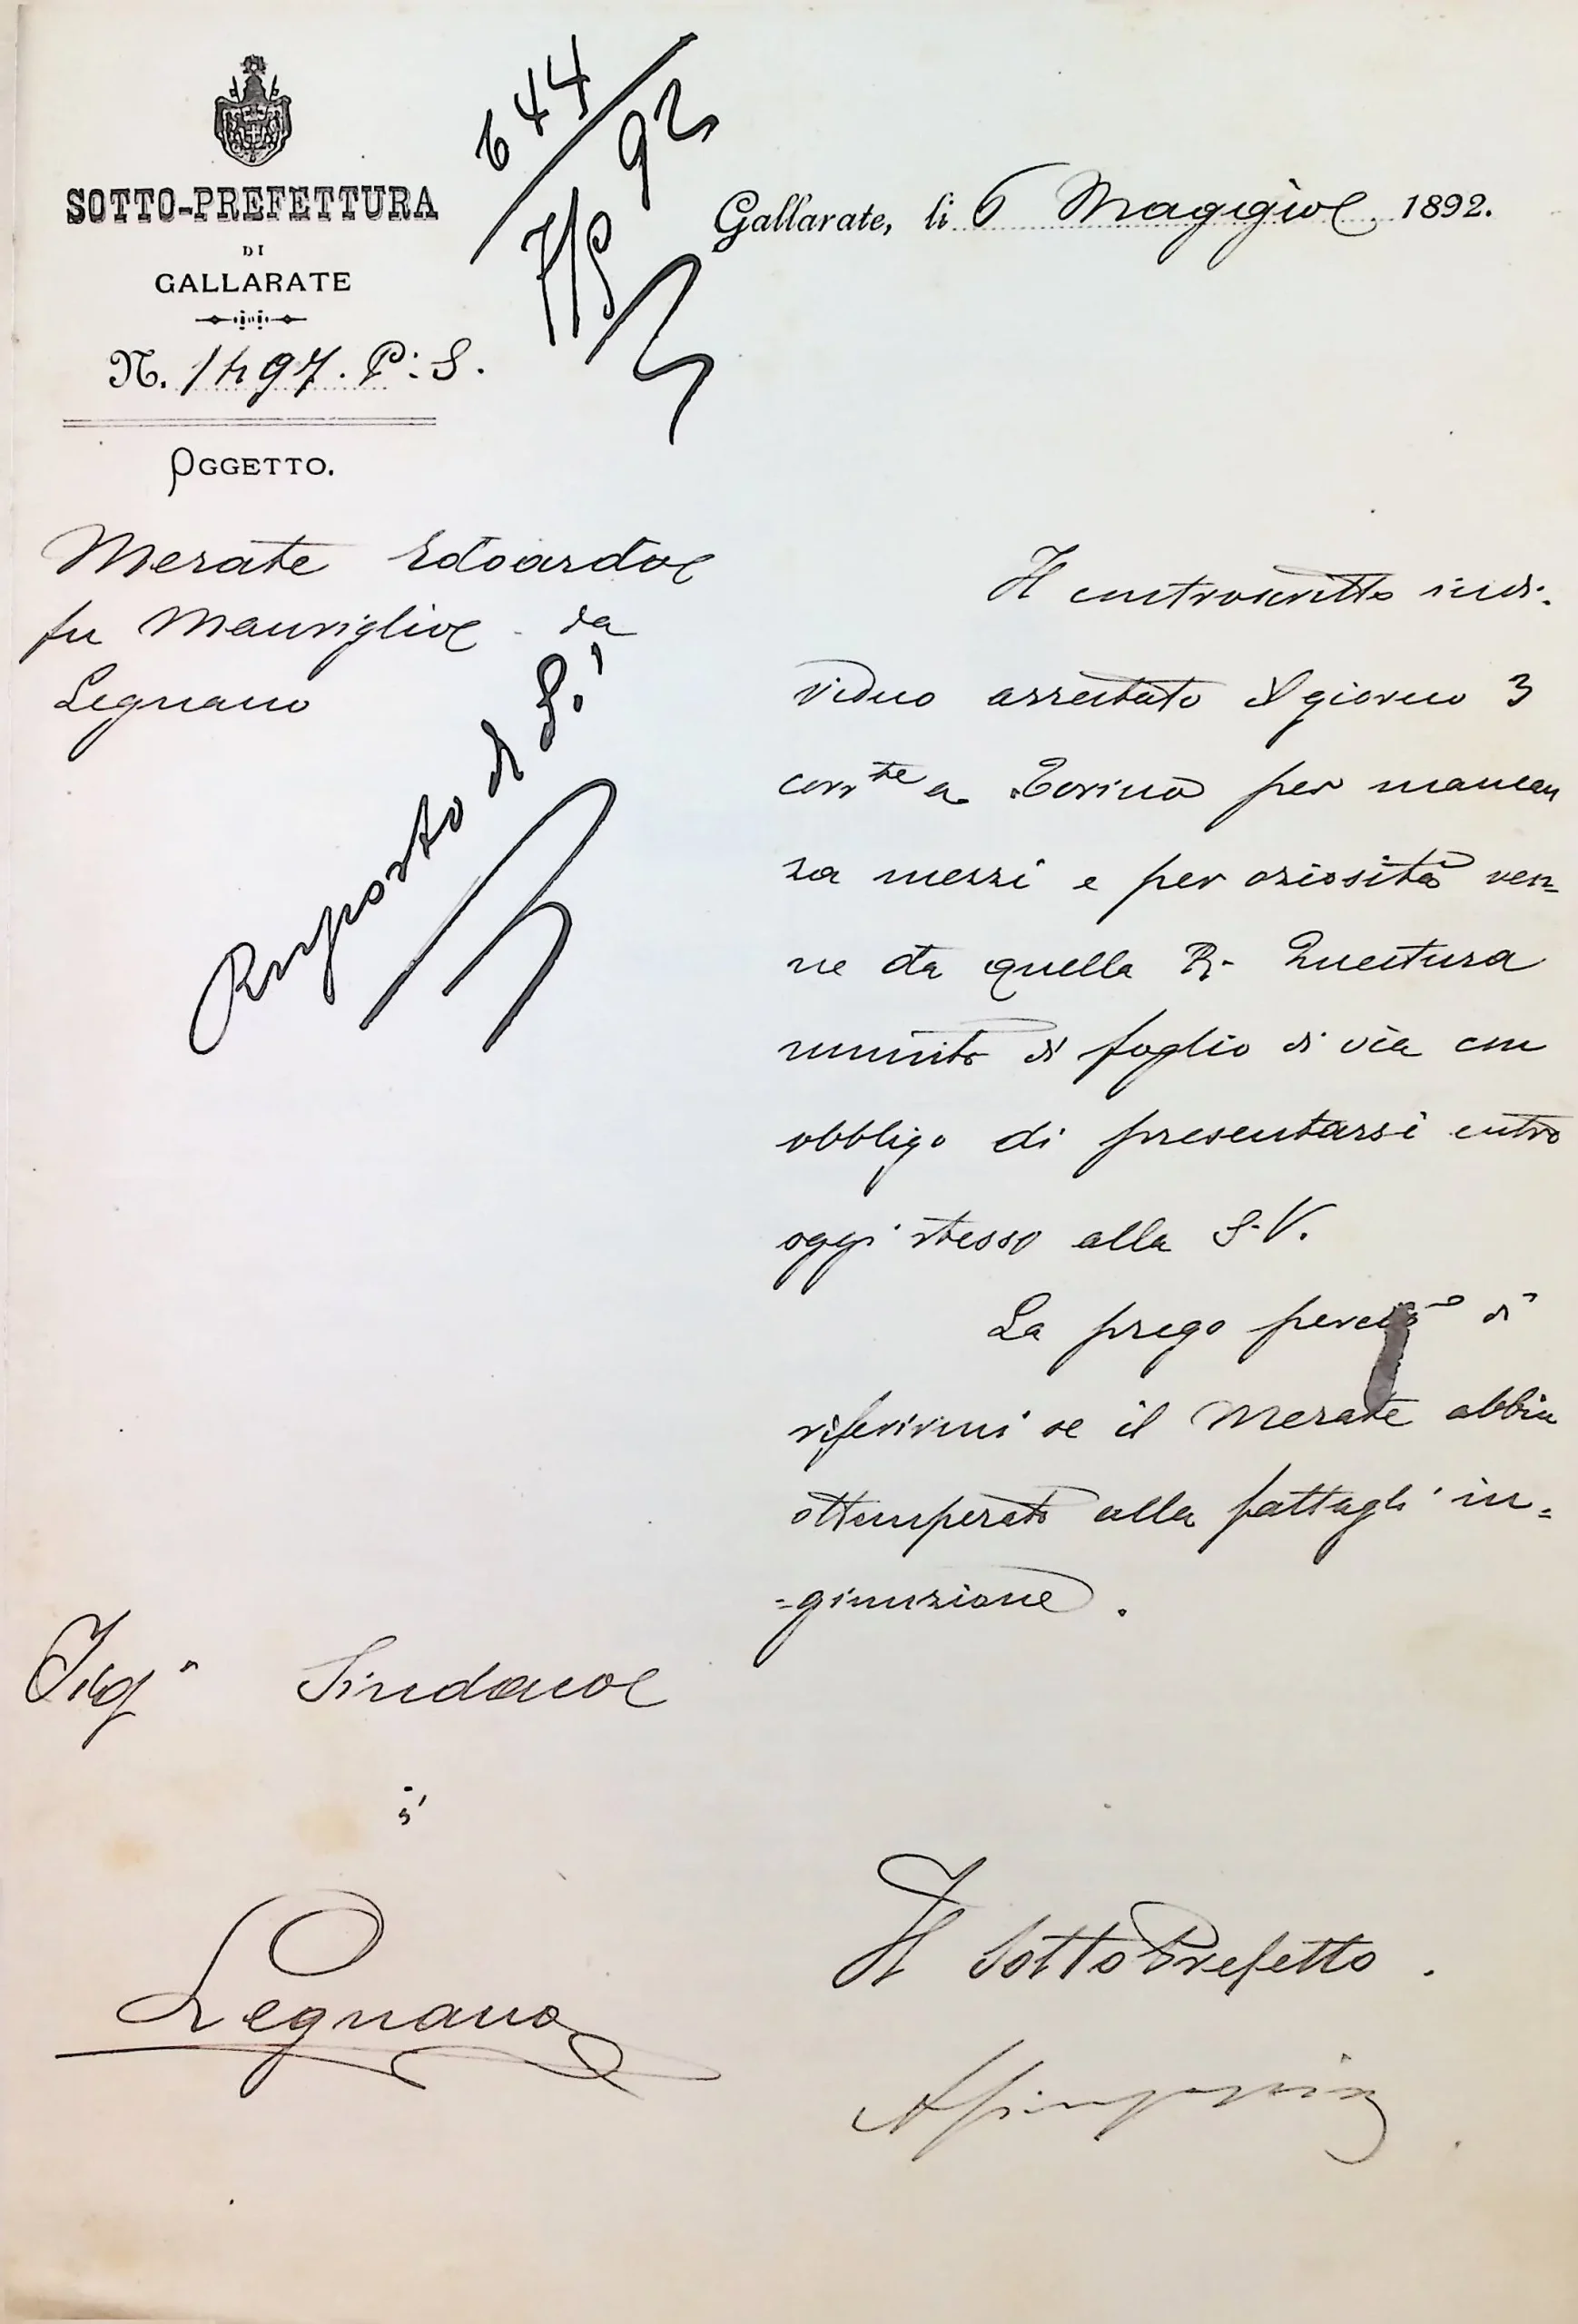 SOTTO-PREFETTURA
DI
GALLARATE
N. 1497. P: S.
644
92
7/5
Gallarate, li 6 Maggio 1892.
OGGETTO.
Merate Edoardo
fu Maurizio da
Legnano
Risposto di Sì
Il controscritto indi-
viduo arrestato il giorno 3
corr.te a Torino per mancan
za mezzi e per oziosità ven=
ne da quella R. Questura
munito di foglio di via con
obbligo di presentarsi entro
oggi stesso alla S.V.
La prego perciò di
riferirmi se il Merate abbia
ottemperato alla fattagli in=
=giunzione.
Sindaco
di
Legnano
Il Sotto Prefetto.